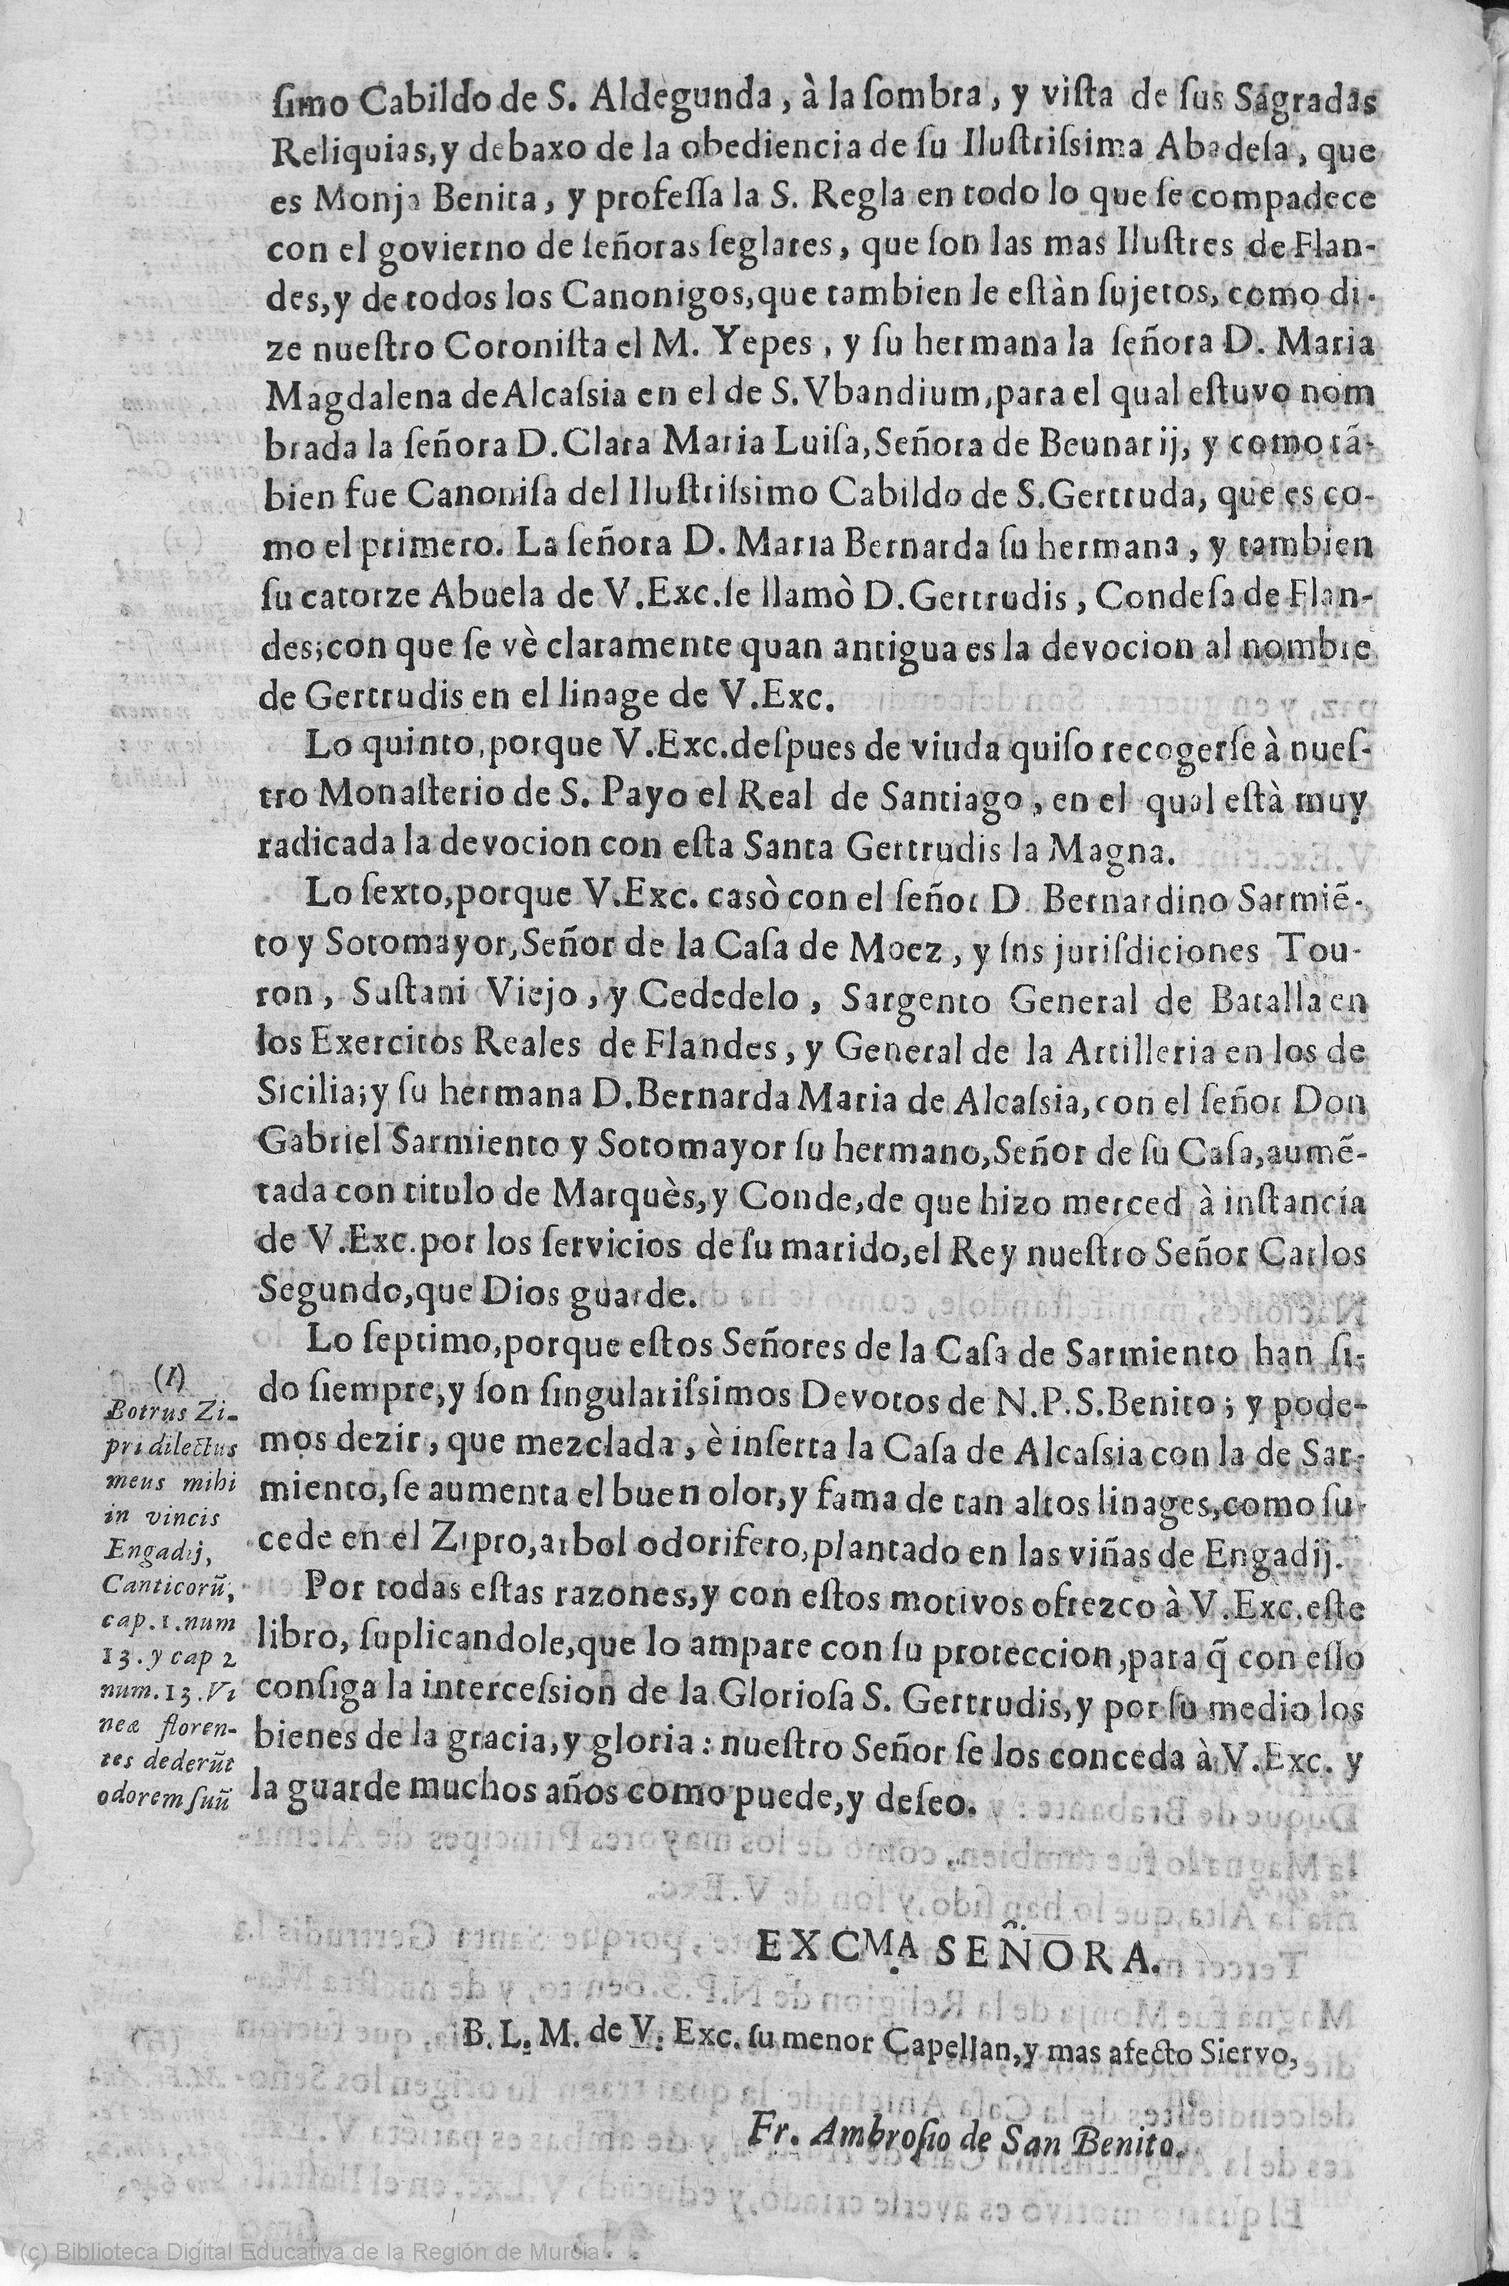 ſimo Cabildo de S. Aldegunda, à la ſombra, y viſta de ſus Sagradas
Reliquias, y debaxo de la obediencia de ſu Iluſtriſsima Abadeſa, que
es Monja Benita, y profeſſa la S. Regla en todo lo que ſe compadece
con el govierno de ſeñoras ſeglares, que ſon las mas Iluſtres de Flan-
des, y de todos los Canonigos, que tambien le eſtàn ſujetos, como di-
ze nueſtro Coroniſta el M. Yepes, y ſu hermana la ſeñora D. Maria
Magdalena de Alcaſsia en el de S. Vbandium, para el qual eſtuvo nom
brada la ſeñora D. Clara Maria Luiſa, Señora de Beunarij, y como tã-
bien fue Canoniſa del Iluſtriſsimo Cabildo de S. Gertruda, que es co-
mo el primero. La ſeñora D. Maria Bernarda ſu hermana, y tambien
ſu catorze Abuela de V. Exc. ſe llamò D. Gertrudis, Condeſa de Flan-
des; con que ſe vè claramente quan antigua es la devocion al nombre
de Gertrudis en el linage de V. Exc.
Lo quinto, porque V. Exc. deſpues de viuda quiſo recogerſe à nueſ-
tro Monaſterio de S. Payo el Real de Santiago, en el qual eſtà muy
radicada la devocion con eſta Santa Gertrudis la Magna.
Lo ſexto, porque V. Exc. casò con el ſeñor D. Bernardino Sarmiẽ-
to y Sotomayor, Señor de la Caſa de Moez, y ſns juriſdiciones Tou-
ron, Suſtani Viejo, y Cededelo, Sargento General de Batalla en
los Exercitos Reales de Flandes, y General de la Artilleria en los de
Sicilia; y ſu hermana D. Bernarda Maria de Alcaſsia, con el ſeñor Don
Gabriel Sarmiento y Sotomayor ſu hermano, Señor de ſu Caſa, aumẽ-
tada con titulo de Marquès, y Conde, de que hizo merced à inſtancia
de V. Exc. por los ſervicios de ſu marido, el Rey nueſtro Señor Carlos
Segundo, que Dios guarde.
Lo ſeptimo, porque eſtos Señores de la Caſa de Sarmiento han ſi-
do ſiempre, y ſon ſingulariſsimos Devotos de N. P. S. Benito; y pode-
mos dezir, que mezclada, è inſerta la Caſa de Alcaſsia con la de Sar-
miento, ſe aumenta el buen olor, y fama de tan altos linages, como ſu-
cede en el Zipro, arbol odorifero, plantado en las viñas de Engadij.
Por todas eſtas razones, y con eſtos motivos ofrezco à V. Exc. eſte
libro, ſuplicandole, que lo ampare con ſu proteccion, para q̃ con eſſo
conſiga la interceſsion de la Glorioſa S. Gertrudis, y por ſu medio los
bienes de la gracia, y gloria: nueſtro Señor ſe los conceda à V. Exc. y
la guarde muchos años como puede, y deſeo.
(I)
Botrus Zi-
pri dilectus
meus mihi
in vincis
Engadij,
Canticorũ,
cap. 1. num
13. y cap 2
num. 13. Vi
neæ floren-
tes dederũt
odorem ſuũ
EXCMA SEÑORA.
B. L. M. de V. Exc. ſu menor Capellan, y mas afecto Siervo,
Fr. Ambroſio de San Benito.
(c) Biblioteca Digital Educativa de la Región de Murcia